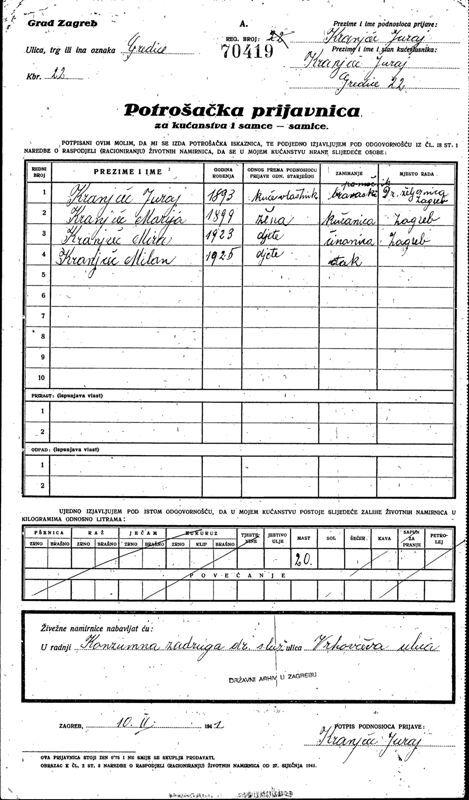 Grad Zagreb
A.
Prezime i ime podnosioca prijave:
Ulica, trg ili ina oznaka Gredice
REG. BROJ: 22
Kranjčić Juraj
70419
Prezime i ime i stan kućevlasnika:
Kranjčić Juraj
Kbr. 22
Gredice 22
Potrošačka prijavnica
za kućanstva i samce — samice.
POTPISANI OVIM MOLIM, DA MI SE IZDA POTROŠAČKA ISKAZNICA, TE PODJEDNO IZJAVLJUJEM POD ODGOVORNOŠĆU IZ ČL. 18 ST. 1
NAREDBE O RASPODJELI (RACIONIRANJU) ŽIVOTNIH NAMIRNICA, DA SE U MOJEM KUĆANSTVU HRANE SLIJEDEĆE OSOBE:
REDNI BROJ PREZIME I IME GODINA ROĐENJA ODNOS PREMA PODNOSIOCU PRIJAVE ODN. STARJEŠINI ZANIMANJE MJESTO RADA
1 Kranjčić Juraj 1893 kućevlastnik Dr. željeznica Zagreb
2 Kranjčić Marija 1899 žena kućanica Zagreb
3 Kranjčić Mira 1923 djete Zagreb
4 Kranjčić Milan 1925 djete đak
5
6
7
8
9
10
PRIRAST: (ispunjava vlast)
1
2
OTPAD: (ispunjava vlast)
1
2
UJEDNO IZJAVLJUJEM POD ISTOM ODGOVORNOŠĆU, DA U MOJEM KUĆANSTVU POSTOJE SLIJEDEĆE ZALIHE ŽIVOTNIH NAMIRNICA U
KILOGRAMIMA ODNOSNO LITRAMA:
PŠENICA RAŽ JEČAM KUKURUZ TJESTENINE JESTIVO ULJE MAST SOL ŠEĆER KAVA SAPUN ZA PRANJE PETROLEJ
ZRNO BRAŠNO ZRNO BRAŠNO ZRNO BRAŠNO ZRNO KLIP BRAŠNO
20.
POVEĆANJE
Živežne namirnice nabavljat ću:
U radnji Konzumna zadruga dr. služ ulica Vrhovčeva ulica
DRŽAVNI ARHIV U ZAGREBU
ZAGREB, 10. II 1941
POTPIS PODNOSIOCA PRIJAVE:
Kranjčić Juraj
OVA PRIJAVNICA STOJI DIN 0'75 I NE SMIJE SE SKUPLJE PRODAVATI.
OBRAZAC K ČL. 2 ST. 2 NAREDBE O RASPODJELI (RACIONIRANJU) ŽIVOTNIH NAMIRNICA OD 27. SIJEČNJA 1941.